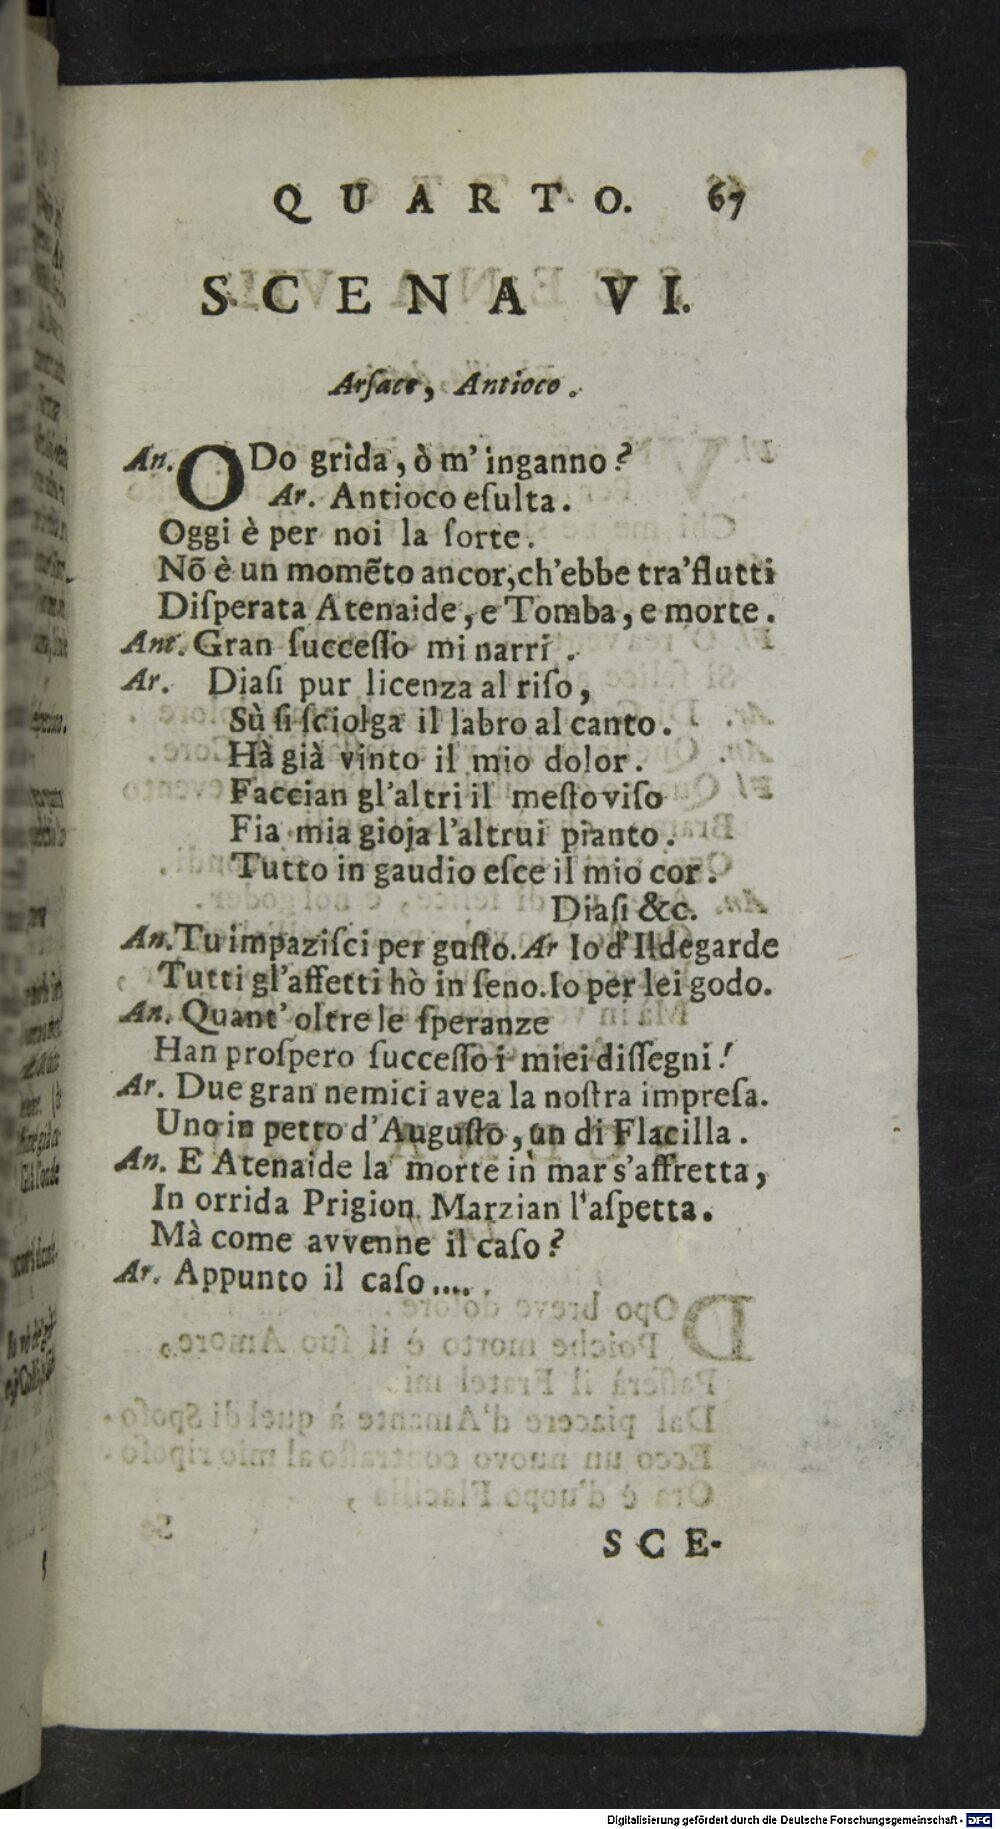 QUARTO. 67
SCENA VI.
Arſace, Antioco.
An. ODo grida, ò m'inganno?
Ar. Antioco eſulta.
Oggi è per noi la ſorte.
Nõ è un momẽto ancor, ch'ebbe tra'flutti
Diſperata Atenaide, e Tomba, e morte.
Ant. Gran ſucceſſo mi narri.
Ar. Diaſi pur licenza al riſo,
Sù ſi ſciolga il labro al canto.
Hà già vinto il mio dolor.
Faccian gl'altri il meſto viſo
Fia mia gioja l'altrui pianto.
Tutto in gaudio eſce il mio cor.
Diaſi &c.
An. Tu impaziſci per guſto. Ar Io d'Ildegarde
Tutti gl'affetti hò in ſeno. Io per lei godo.
An. Quant' oltre le ſperanze
Han proſpero ſucceſſo i miei diſſegni!
Ar. Due gran nemici avea la noſtra impreſa.
Uno in petto d'Auguſto, un di Flacilla.
An. E Atenaide la morte in mar s'affretta,
In orrida Prigion Marzian l'aſpetta.
Mà come avvenne il caſo?
Ar. Appunto il caſo.....
SCE-
Digitalisierung gefördert durch die Deutsche Forschungsgemeinschaft - DFG